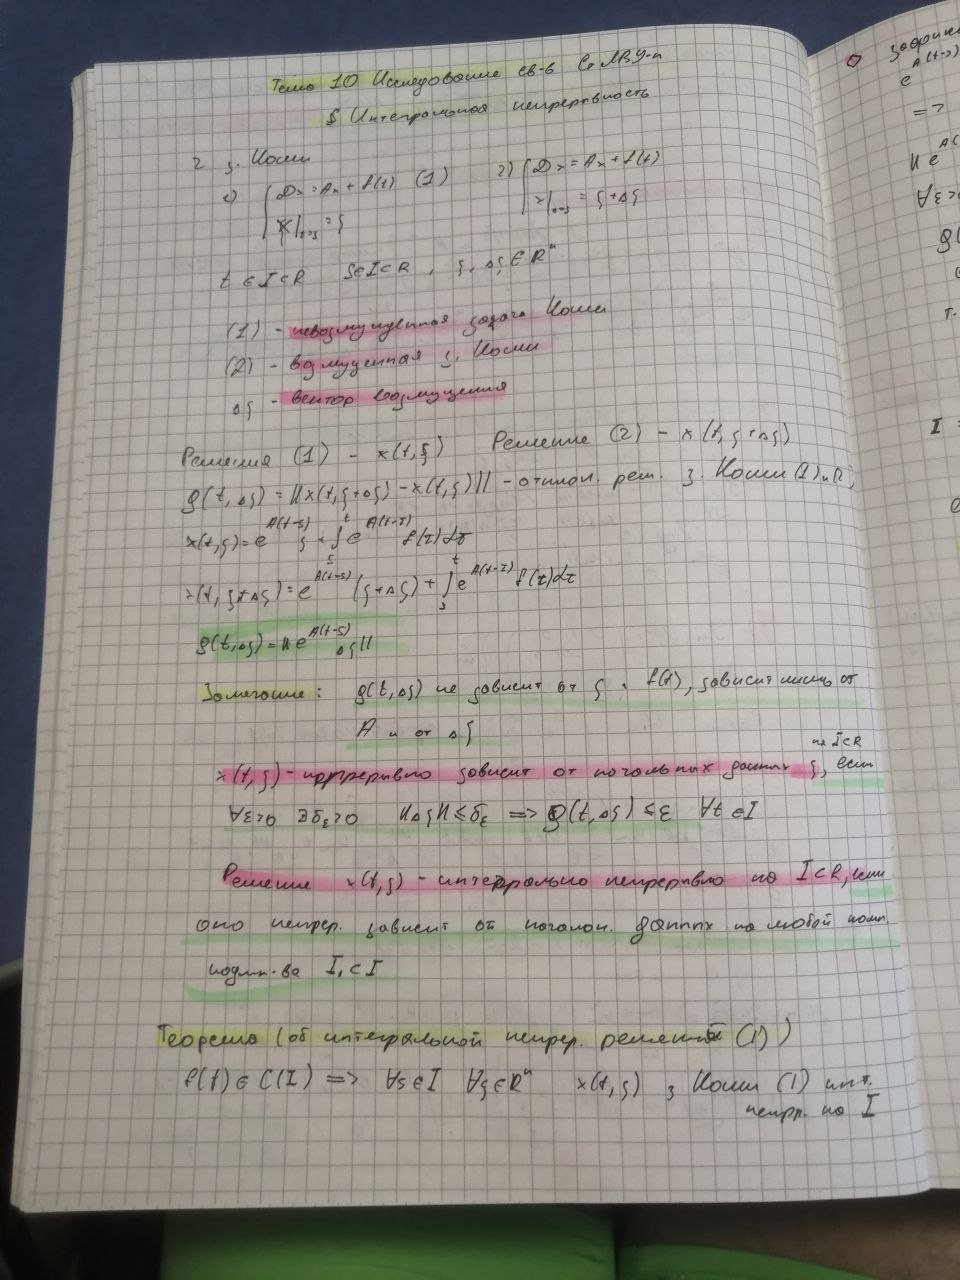 Тема 10 Исследование св-в Ст ЛВУ-n
§ Интегральная непрерывность
2 з. Коши
1) { Dx = Ax + f(t) (1) 2) { Dx = Ax + f(t)
x|t=s = ξ x|t=s = ξ+Δξ
t ∈ I ⊂ R s ∈ I ⊂ R, ξ, Δξ ∈ Rⁿ
(1) - невозмущенная задача Коши
(2) - возмущенная з. Коши
Δξ - вектор возмущения
Решения (1) - x(t,ξ) Решение (2) - x(t,ξ+Δξ)
ρ(t,Δξ) = ||x(t,ξ+Δξ) - x(t,ξ)|| - отклон. реш. з. Коши (1) и (2)
x(t,ξ) = e^A(t-s) ξ + ∫ₛᵗ e^A(t-τ) f(τ)dτ
x(t,ξ+Δξ) = e^A(t-s) (ξ+Δξ) + ∫ₛᵗ e^A(t-τ) f(τ)dτ
ρ(t,Δξ) = ||e^A(t-s) Δξ||
Замечание: ρ(t,Δξ) не зависит от ξ и f(t), зависит лишь от
A и от Δξ
на I⊂R
x(t,ξ) - непрерывно зависит от начальных данных ξ, если
∀ε>0 ∃δε>0 ||Δξ|| ≤ δε => ρ(t,Δξ) ≤ ε ∀t ∈ I
Решение x(t,ξ) - интегрально непрерывно на I⊂R, если
оно непрер. зависит от началон. данных на любой комп.
подмн-ве I₁ ⊂ I
Теорема (об интегральной непрер. решений (1))
f(t) ∈ C(I) => ∀s∈I ∀ξ∈Rⁿ x(t,ξ) з Коши (1) инт.
непрер. на I
e^A(t-s)
=>
|| e^A(
∀ε>
ρ(
т.
I =